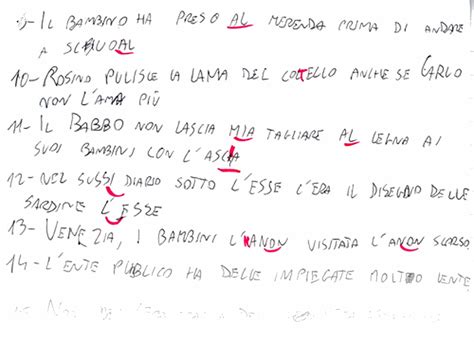 9- IL BAMBINO HA PRESO AL MERENDA PRIMA DI ANDARE
A SCUOAL
10- ROSINO PULISCE LA LAMA DEL COLTELLO ANCHE SE CARLO
NON L'AMA PIÙ
11- IL BABBO NON LASCIA MIA TAGLIARE AL LEGNA AI
SUOI BAMBINI CON L'ASCIA
12- NEL SUSSI DIARIO SOTTO L'ESSE C'ERA IL DISEGNO DELLE
SARDINE L'ESSE
13- VENEZIA, I BAMBINI L'ANON VISITATA L'ANON SCORSO
14- L'ENTE PUBLICO HA DELLE IMPIEGATE MOLTO LENTE